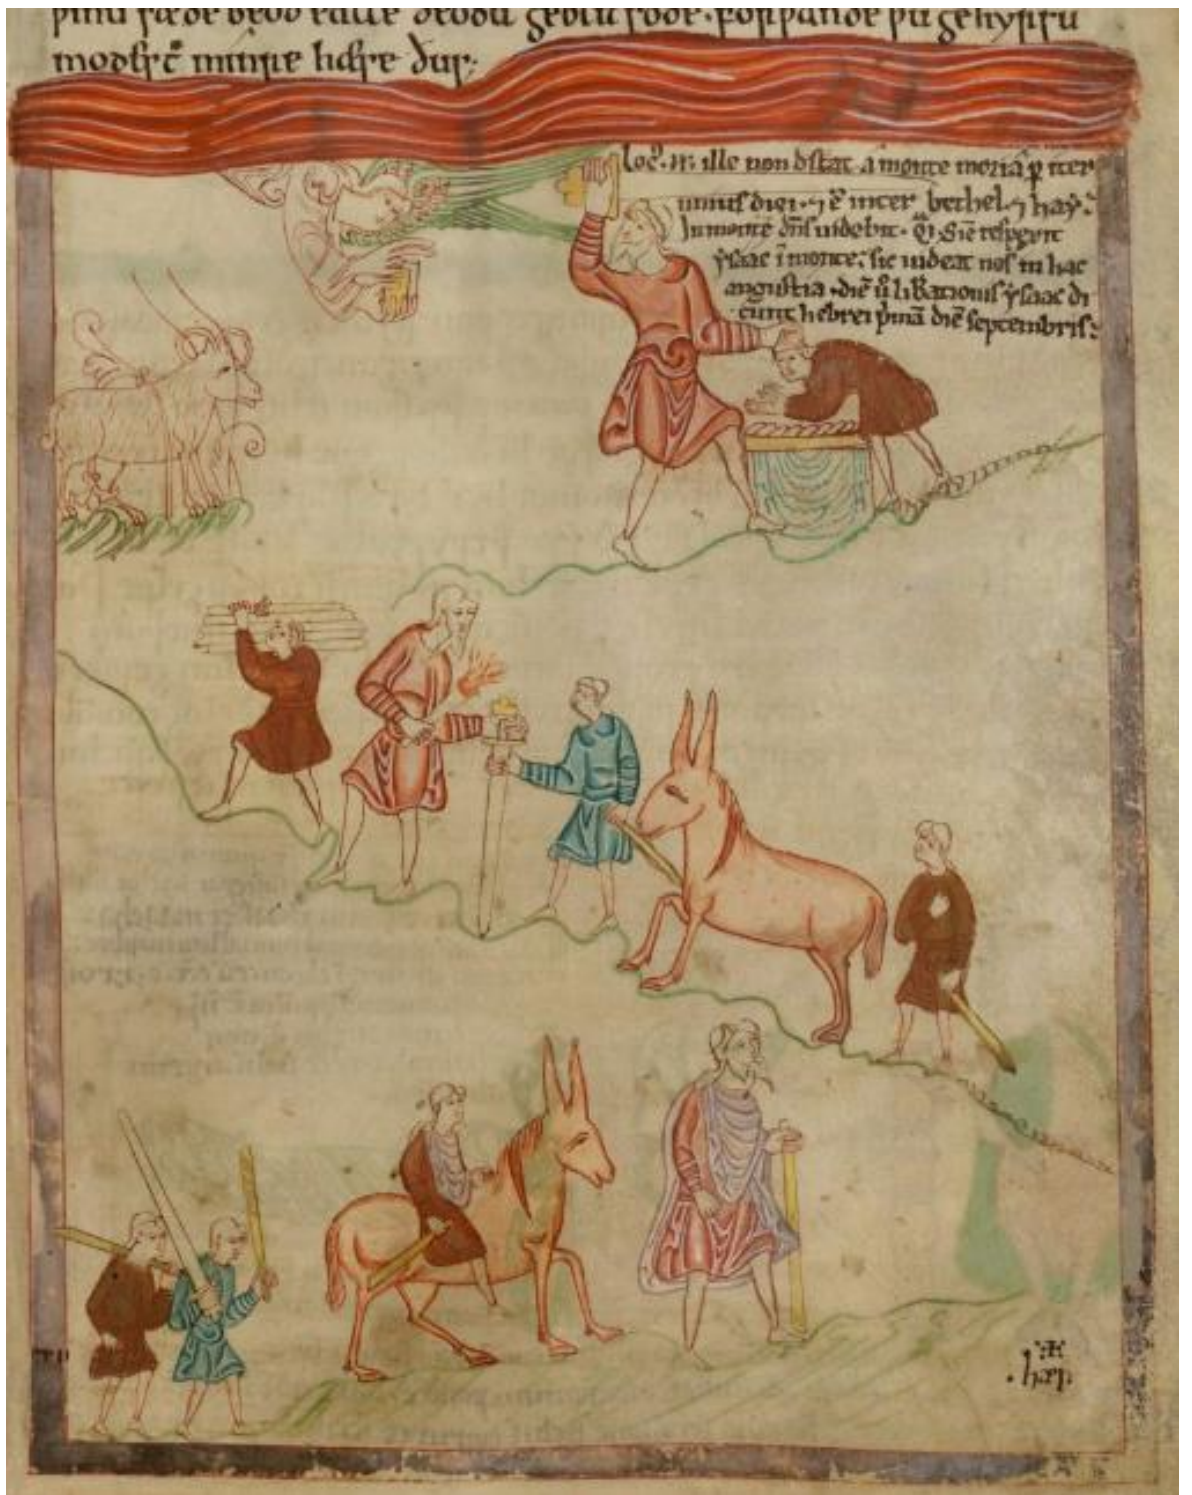 þinū sæde beoð ealle ðeoda gebletsode. forþanðe þu gehyrsu
modest minre hæse ðus;
loc᷒ .n. ille non distat a monte moria p iter
unius diei. ⁊ ē inter bethel ⁊ hay.
In monte dn̄s uidebit. Sic̄ respexit
ysaac ī monte: sic uideat nos in hac
angustia. diē ů libationis ysaac di
cunt hebrei p̄mā diē septembris:
hær